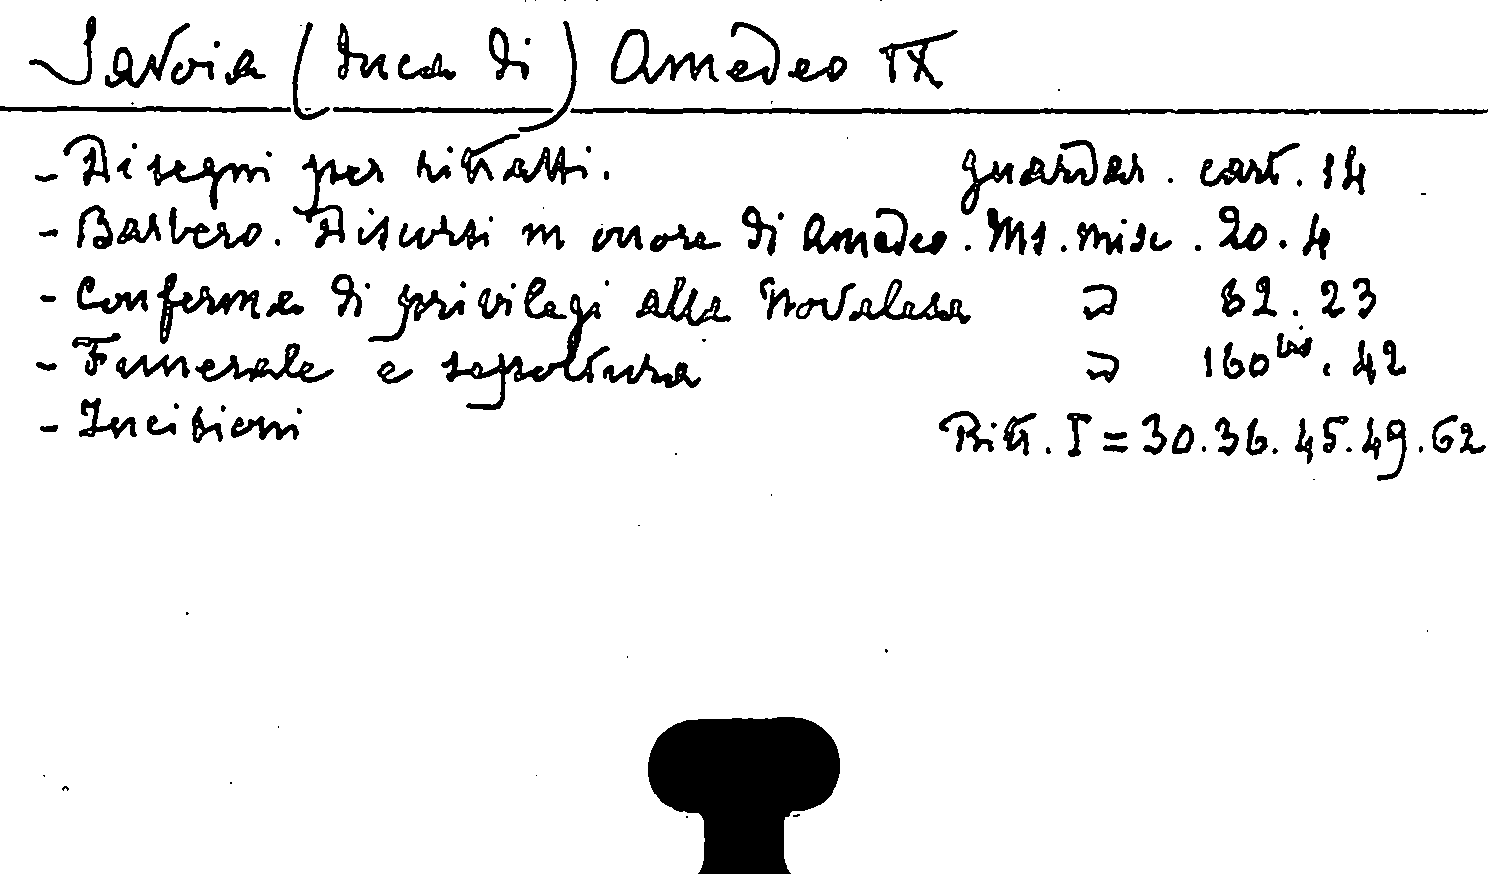 Savoia (Duca di) Amedeo IX
- Disegni per ritratti. guardar. cart. 14
- Barbero. Discorsi in onore di Amedeo. Ms. misc. 20.4
- Conferma di privilegi alla Novalesa " 82.23
- Funerale e sepoltura " 160 bis. 42
- Incisioni Ritr. I = 30.36.45.49.62